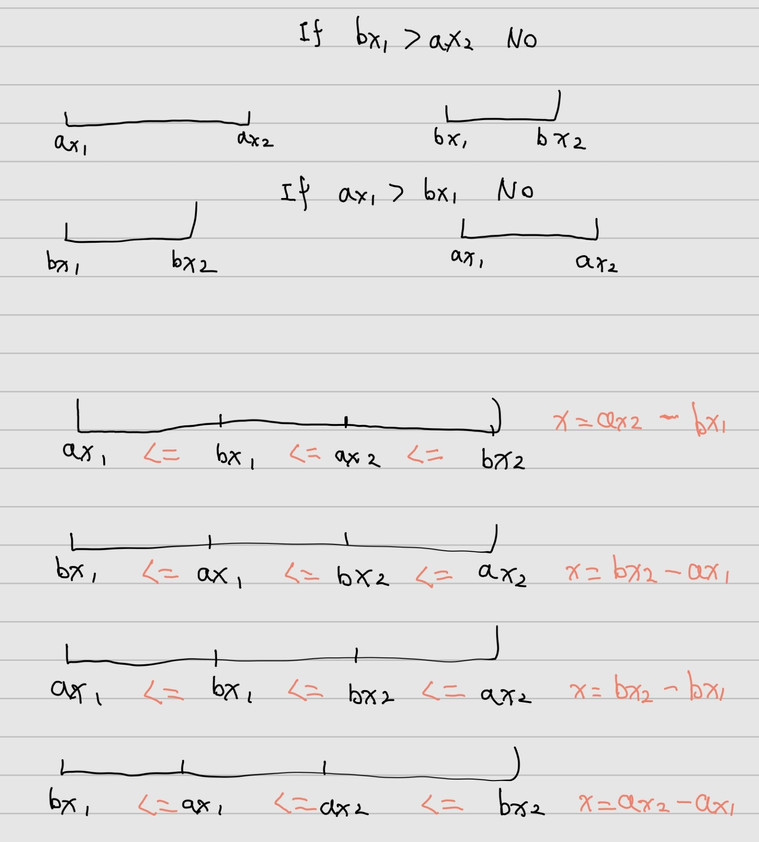 If bx₁ > ax₂ No
ax₁ ax₂ bx₁ bx₂
If ax₁ > bx₁ No
bx₁ bx₂ ax₁ ax₂
ax₁ <= bx₁ <= ax₂ <= bx₂ x = ax₂ - bx₁
bx₁ <= ax₁ <= bx₂ <= ax₂ x = bx₂ - ax₁
ax₁ <= bx₁ <= bx₂ <= ax₂ x = bx₂ - bx₁
bx₁ <= ax₁ <= ax₂ <= bx₂ x = ax₂ - ax₁